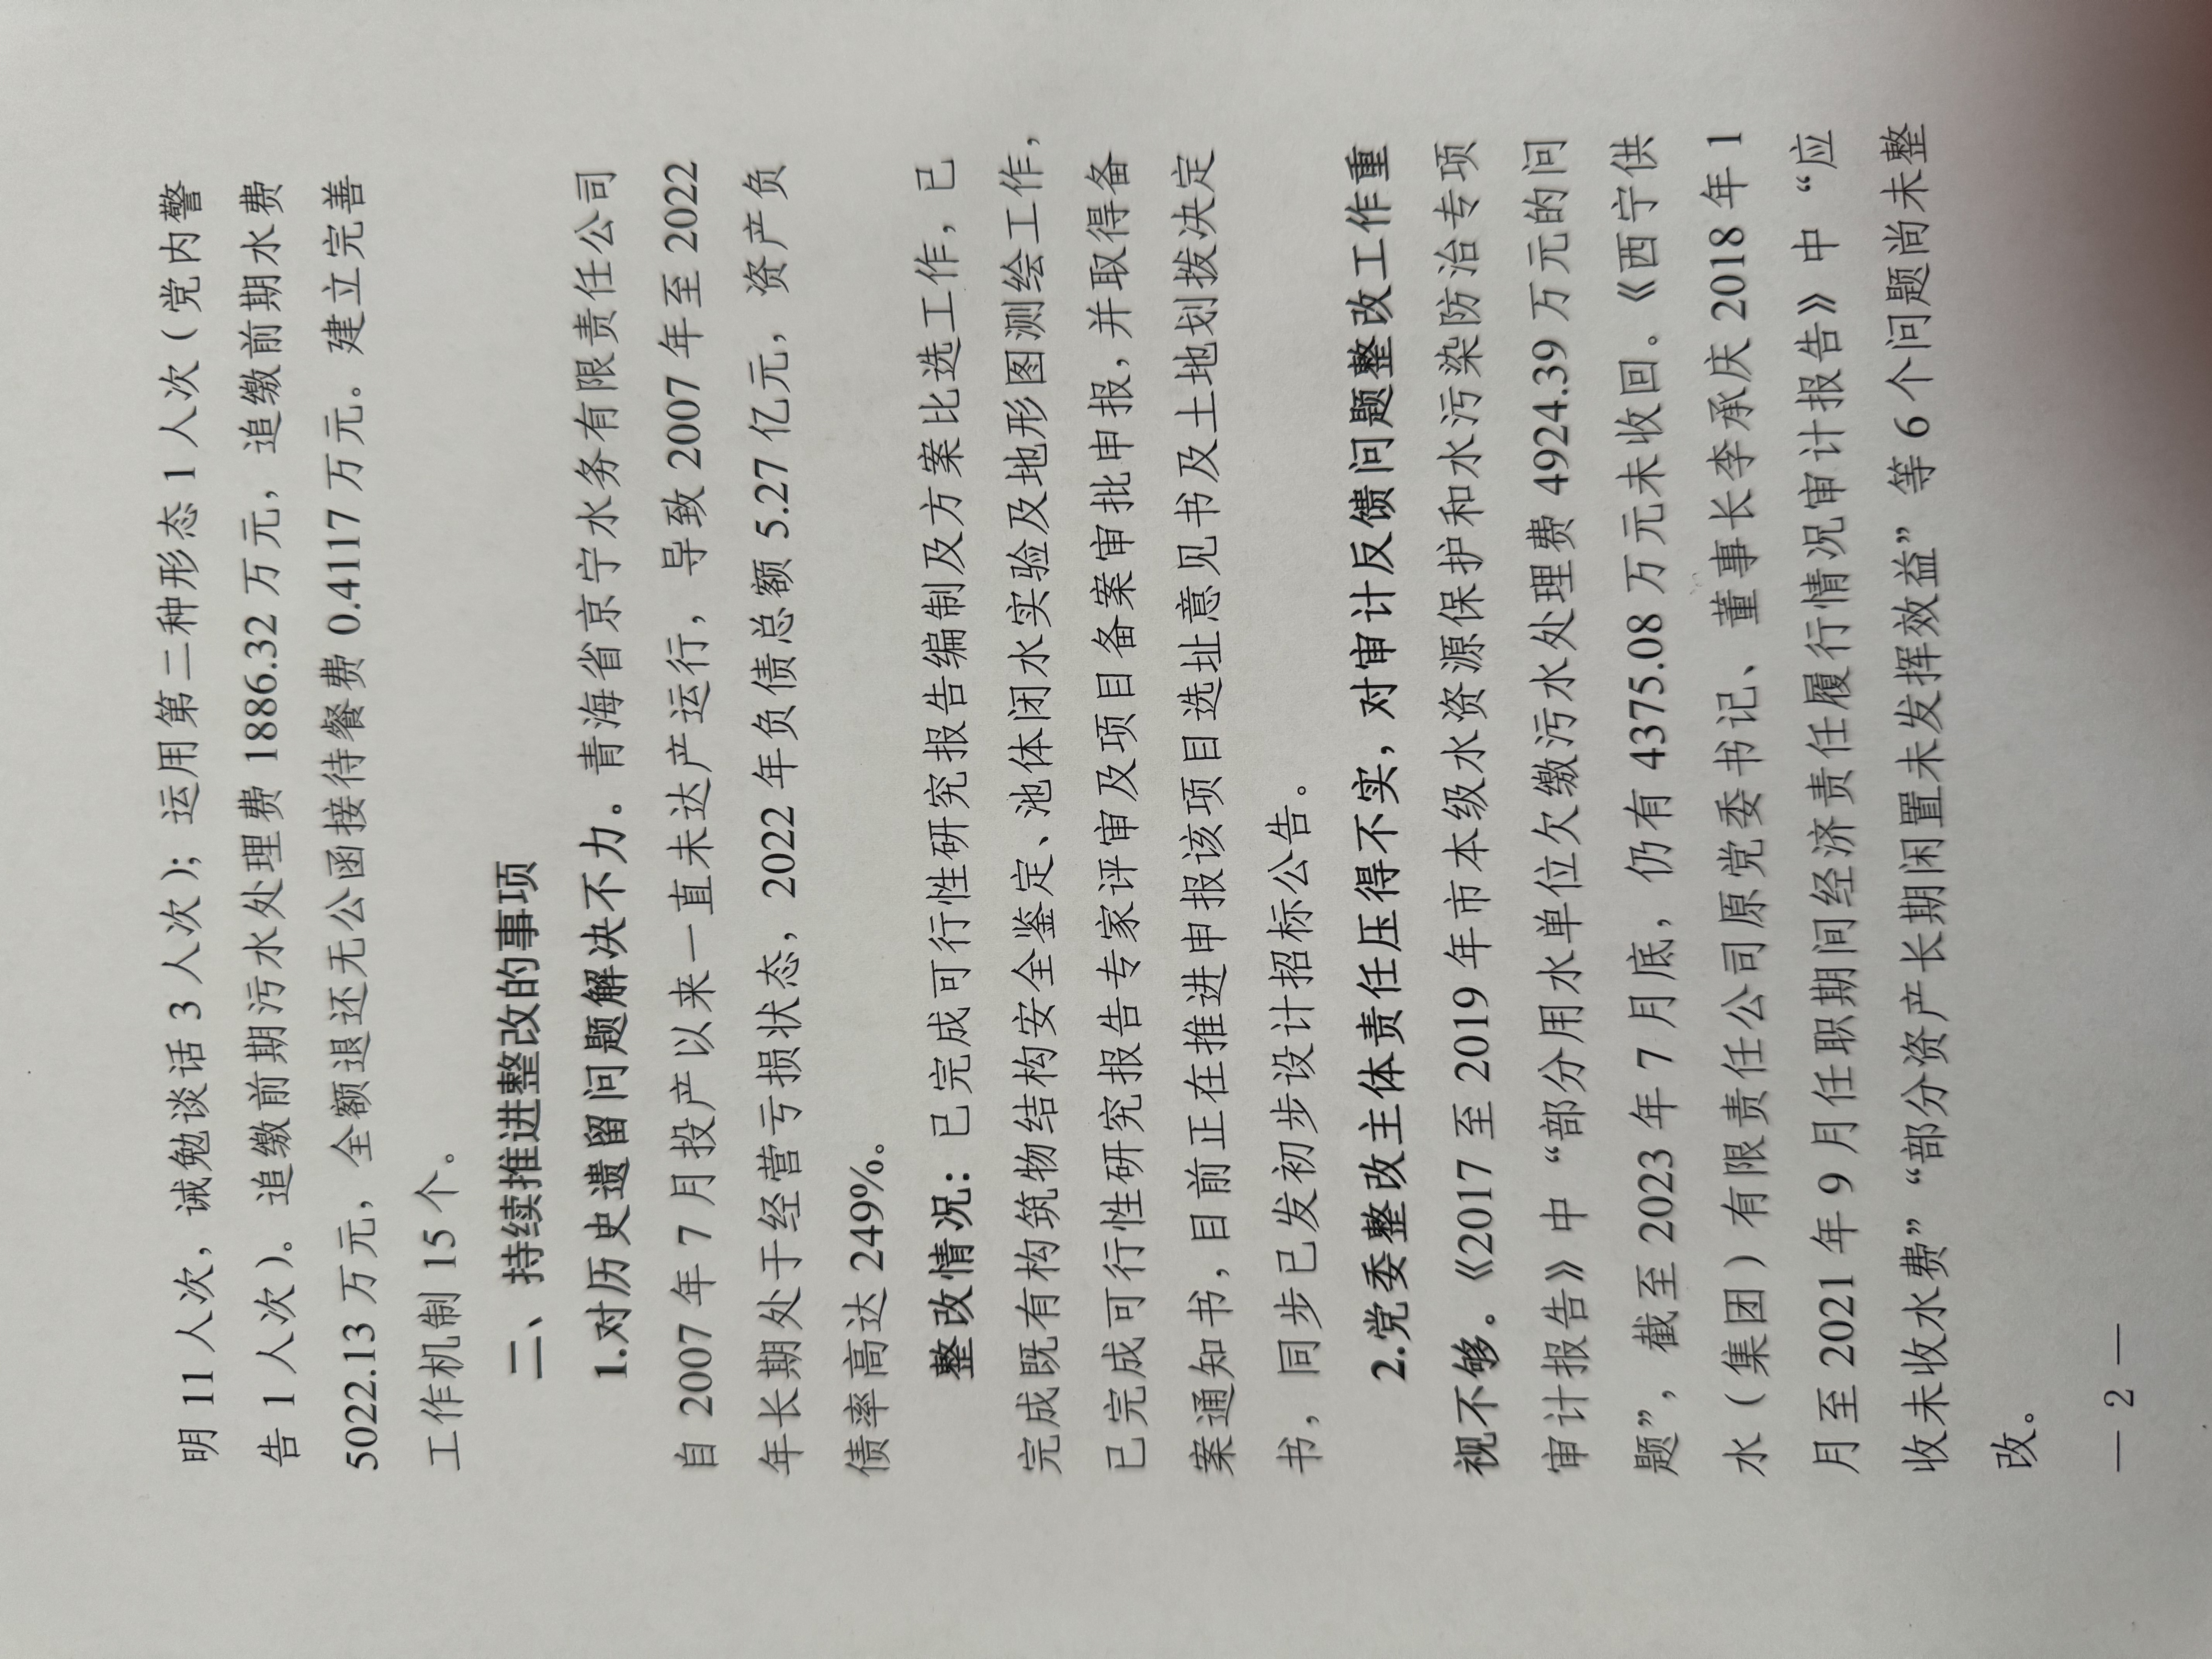 明 11 人次，诫勉谈话 3 人次）；运用第二种形态 1 人次（党内警
告 1 人次）。追缴前期污水处理费 1886.32 万元，追缴前期水费
5022.13 万元，全额退还无公函接待餐费 0.4117 万元。建立完善
工作机制 15 个。
二、持续推进整改的事项
1.对历史遗留问题解决不力。青海省京宁水务有限责任公司
自 2007 年 7 月投产以来一直未达产运行，导致 2007 年至 2022
年长期处于经营亏损状态，2022 年负债总额 5.27 亿元，资产负
债率高达 249%。
整改情况：已完成可行性研究报告编制及方案比选工作，已
完成既有构筑物结构安全鉴定、池体闭水实验及地形图测绘工作，
已完成可行性研究报告专家评审及项目备案审批申报，并取得备
案通知书，目前正在推进申报该项目选址意见书及土地划拨决定
书，同步已发初步设计招标公告。
2.党委整改主体责任压得不实，对审计反馈问题整改工作重
视不够。《2017 至 2019 年市本级水资源保护和水污染防治专项
审计报告》中“部分用水单位欠缴污水处理费 4924.39 万元的问
题”，截至 2023 年 7 月底，仍有 4375.08 万元未收回．《西宁供
水（集团）有限责任公司原党委书记、董事长李承庆 2018 年 1
月至 2021 年 9 月任职期间经济责任履行情况审计报告》中“应
收未收水费”“部分资产长期闲置未发挥效益”等 6 个问题尚未整
改。
— 2 —